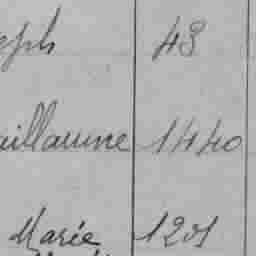 eph 48
uillaume 1440
Marie 1201